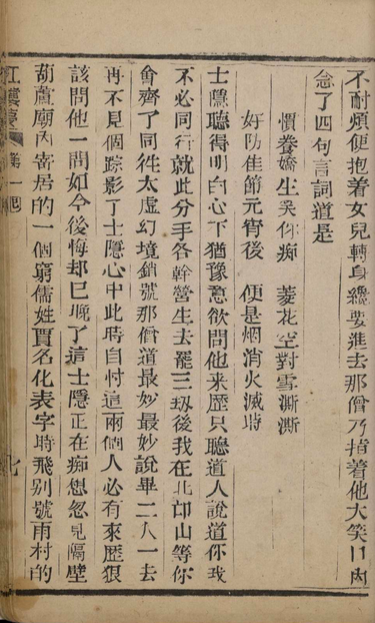 不耐煩便抱着女兒轉身纔要進去那僧乃指着他大笑口內
念了四句言詞道是
慣養嬌生笑你痴　菱花空對雪澌澌
好防佳節元宵後　便是烟消火滅時
士隱聽得明白心下猶豫意欲問他來歷只聽道人說道你我
不必同行就此分手各幹營生去罷三刼後我在北邙山等你
會齊了同徃太虛幻境銷號那僧道最妙最妙說畢二人一去
再不見個踪影了士隱心中此時自忖這兩個人必有來歷狠
該問他一問如今後悔却已晚了這士隱正在痴想忽見隔壁
葫蘆廟內寄居的一個窮儒姓賈名化表字時飛别號雨村的
紅樓夢　第一囘　七